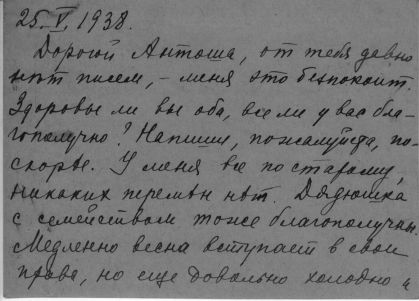 25.V.1938.
Дорогой Антоша, от тебя давно
нѣт писем, – меня это безпокоит.
Здоровы ли вы оба, все ли у вас бла-
гополучно? Напиши, пожалуйста, по-
скорѣе. У меня все по старому,
никаких перемѣн нѣт. Дядюшка
с семейством тоже благополучны.
Медленно весна вступает в свои
права, но еще довольно холодно и